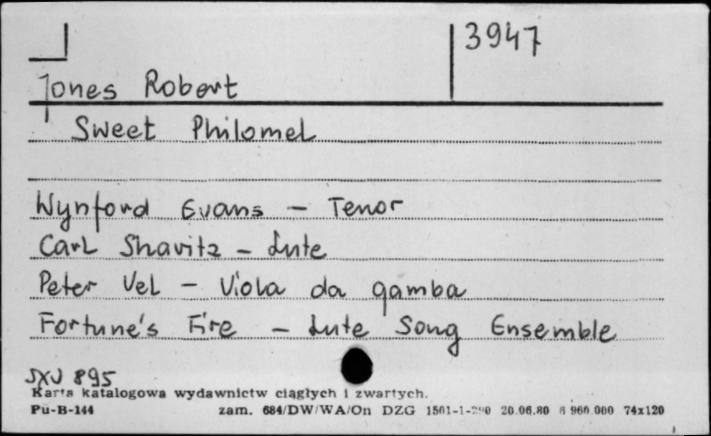 3947
Jones Robert
Sweet Philomel
Wynford Evans - Tenor
Carl Shavitz - Lute
Peter Vel - Viola da gamba
Fortune's Fire - Lute Song Ensemble
SXV 895
Karta katalogowa wydawnictw ciągłych i zwartych.
Pu-B-144 zam. 684/DW/WA/On DZG 20.06.80 960.000 74x120